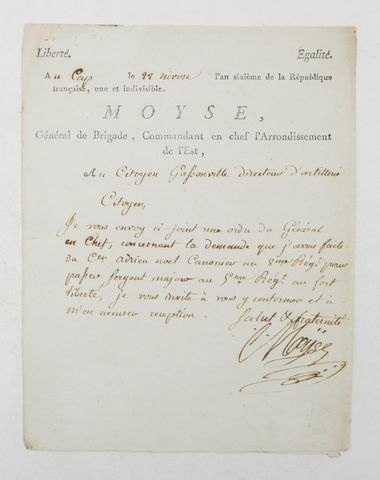 Liberté. Egalité.
Au Cap le 22 nivose l'an sixième de la République
française, une et indivisible.
MOYSE,
Général de Brigade, Commandant en chef l'Arrondissement
de l'Est,
Au Citoyen Gassonville Directeur d'artillerie
Citoyen,
Je vous envoy ci-joint une ordre du Général
en Chef, concernant la demande que j'avois faite
du Cen adrien noel Canonier au 8me Régt. pour
passer sergent major au 5me Régt. au fort
liberté, je vous invite à vous y conformer et à
m'en accuser reception.
Salut & fraternité
Moyse